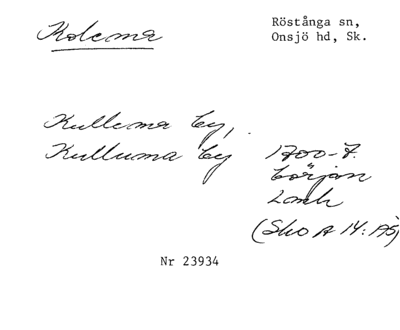 Kolema
Röstånga sn,
Onsjö hd, Sk.
Kullema by,
Kulluma by 1700-t.
början
Lmh
(Sko A 14: A5)
Nr 23934